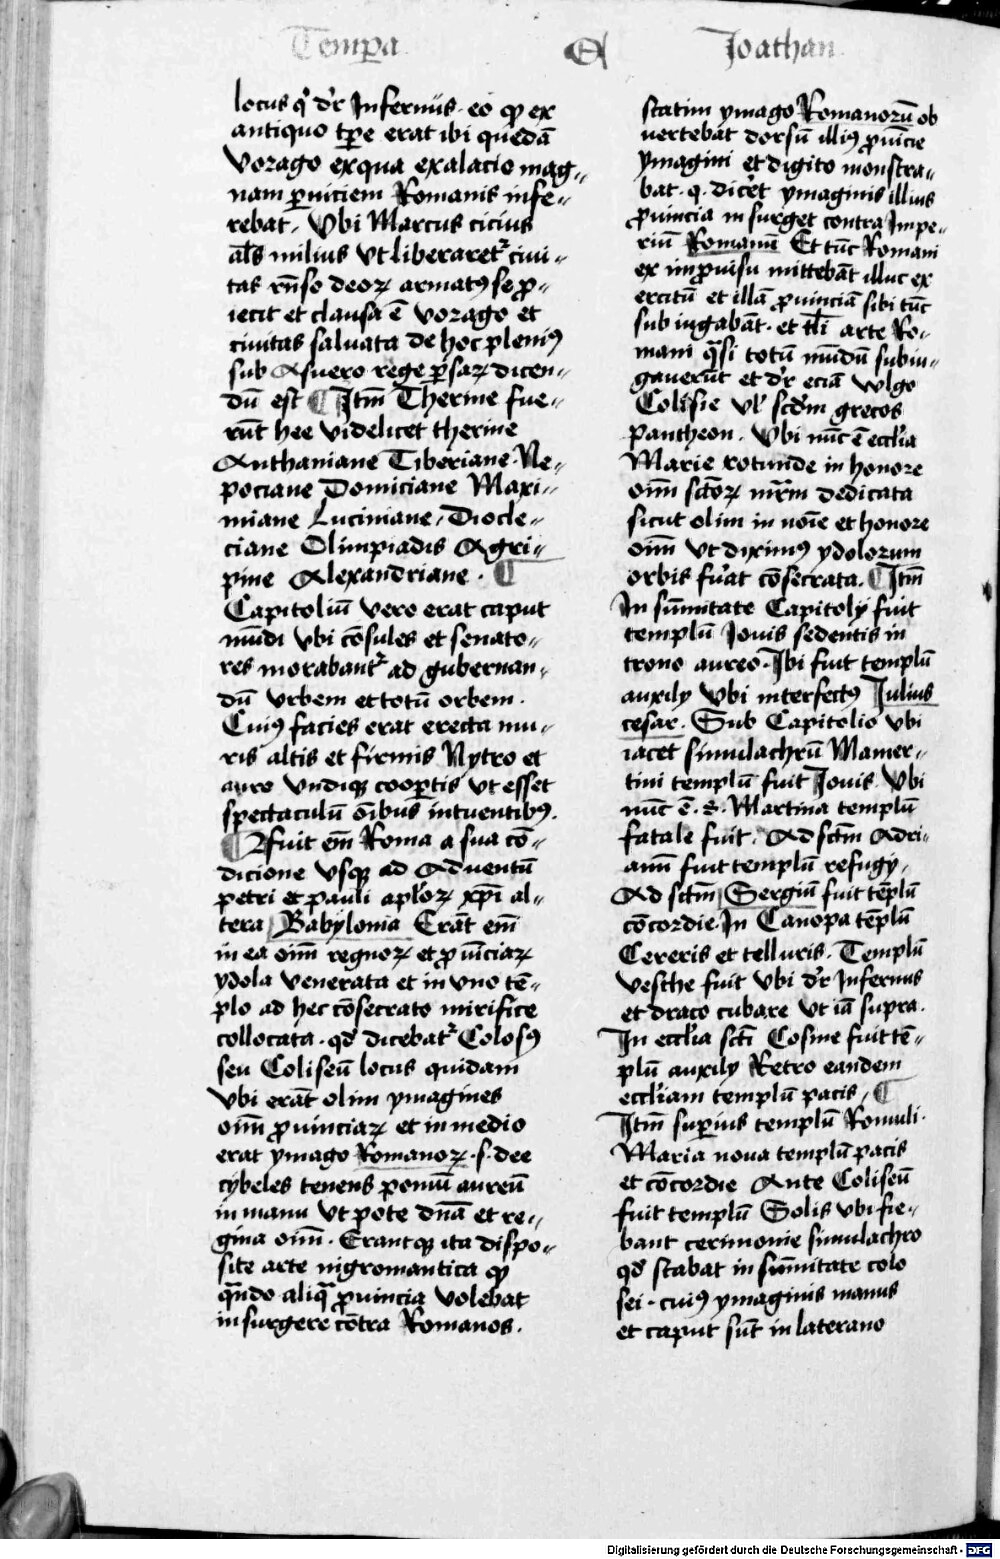 Tempa
Et
Joathan
locus q̇ dr̄ Infernus · eo qꝫ ex
antiquo tpꝛe erat ibi quedā
vorago ex qua exalacio mag„
nam ꝑniciem Romanis infe„
rebat · Vbi Marcus cicius
al̄s milius Vt liberaretᷣ ciui„
tas rn̄so deoꝝ armatꝰ se ꝓ„
iecit et clausa ē vorago et
ciuitas saluata de hoc pleniꝰ
sub Asuero rege ꝑsaꝝ dicen„
dū est ¶ Itm̄ Therme fue„
rūt hee videlicet therme
Anthaniane Tiberiane · Ne„
pociane Domiciane Maxi„
miane Luciniane, Diocle„
ciane Olimpiadis Agri„
pine Alexandriane · ¶
Capitoliū vero erat caput
mūdi vbi cōsules et senato„
res morabantᷣ ad gubernan„
dū vrbem et totū orbem ·
Cuiꝰ facies erat erecta mu„
ris altis et firmis Nytro et
auro vndiqꝫ cooꝑtis vt esset
spectaculū oībus intuentibꝰ.
¶ Afuit em̄ Roma a sua cō„
dicione vsqꝫ ad Aduentū
petri et pauli apl̄oꝝ xp̄i al„
tera Babylonia Erāt em̄
in ea oīm regnoꝝ et ꝓuīciaꝝ
ydola venerata et in vno tē„
plo ad hec cōsecrato mirifice
collocata · qd̄ dicebatᷣ Colosꝰ
seu Coliseū locus quidam
vbi erāt olim ymagines
oīm ꝓuinciaꝝ et in medio
erat ymago Romanoꝝ · s · dee
cybeles tenens pomū aureū
in manu vt pote dn̄a et re„
gina oīm · Erantqꝫ ita dispo„
site arte nigromantica qꝫ
qn̄do aliqͣ ꝓuincia volebat
insurgere cōtra Romanos ·
statim ymago Romanorū ob
uertebat dorsū illiꝰ ꝓuīcie
ymagini et digito monstra„
bat · q · dicēt ymaginis illius
ꝓuincia insurget contra Impe„
riū Romanū Et tūc Romani
ex improuisu mittebāt illuc ex
ercitū et illā ꝓuinciā sibi tūc
subiugabāt · et tl̄i arte Ro„
mani qͣsi totū mūdū subiu„
gauerūt et dr̄ eciā wlgo
Colisie vl̄ scd̄m grecos
Pantheon · Vbi nūc ē eccl̄ia
Marie rotunde in honore
oīm sctōꝝ mr̄m dedicata
sicut olim in noīe et honore
oīm vt diximꝰ ydolorum
orbis fuāt cōsecrata · ¶ Itm̄
In sūmitate Capitolÿ fuit
templū Jouis sedentis in
trono aureo · Ibi fuit templū
auxilÿ Vbi interfectꝰ Julius
cesar · Sub Capitolio vbi
iacet simulachrū Mamer„
tini templū fuit Jouis · Vbi
nūc ē · s · Martina templū
fatale fuit · Ad sctm̄ Adri„
anū fuit templū refugÿ,
Ad sctm̄ Sergiū fuit tēplū
cōcordie In Canopa tēplū
Cereris et telluris · Templū
vesthe fuit Vbi dr̄ Infernus
et draco cubare vt iā supra ·
In eccl̄ia sctī Cosme fuit tē„
plū auxilÿ Retro eandem
eccl̄iam templū pacis, ¶
Itm̄ suꝑius templū Romuli ·
Maria noua templū pacis
et cōcordie Ante Coliseū
fuit templū Solis vbi fie„
bant cerimonie simulachro
qd̄ stabat in sūmitate colo
sei · cuiꝰ ymaginis manus
et caput sūt in laterano
Digitalisierung gefördert durch die Deutsche Forschungsgemeinschaft - DFG